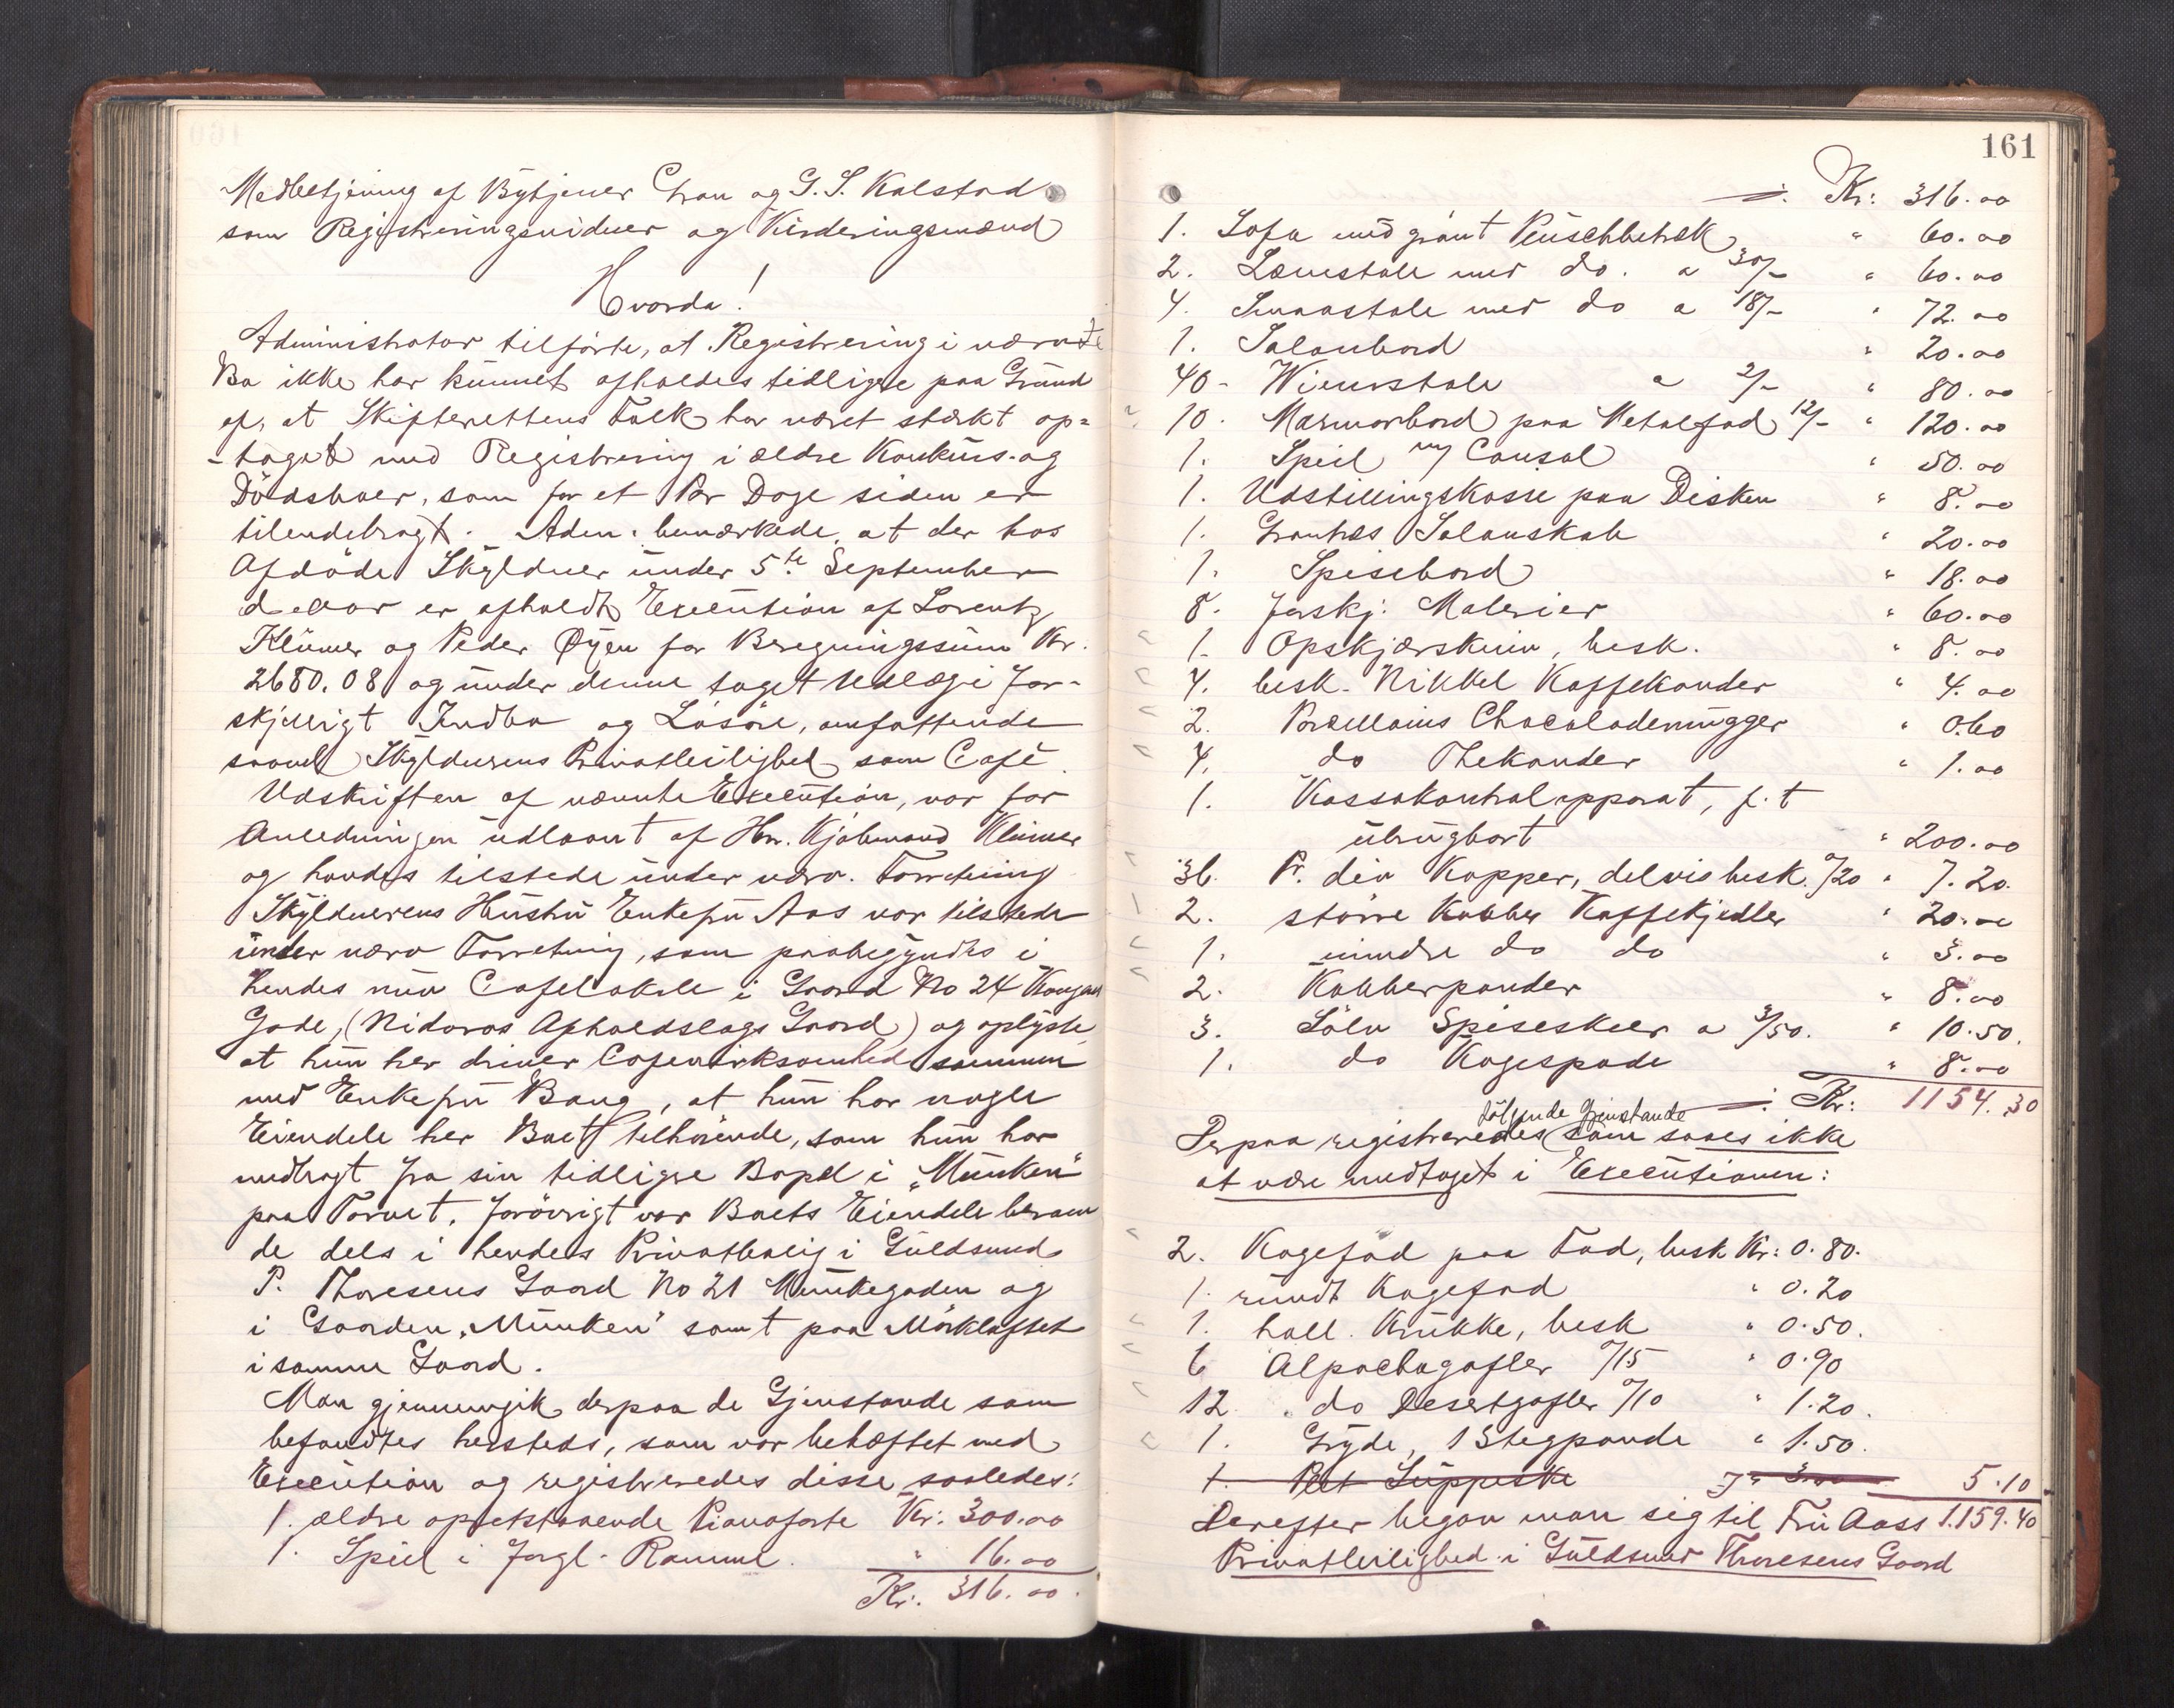 Medbetjening af Bytjener Gran og G. S. Kalstad
som Registreringsvidner og Vurderingsmænd
Hvorda!
Administrator tilførte, at Registrering i nærv.
Bo ikke har kunnet afholdes tidligere paa Grund
af, at Skifterettens Folk har været stærkt op=
-taget med Registrering i ældre Konkurs- og
Dødsboer, som for et Par Dage siden er
tilendebragt. Adm. bemærkede, at der hos
Afdøde Skyldner under 5te September
d. aar er afholdt Execution af Lorentz
Klüwer og Peder Øyen for Beregningssum Kr.
2680.08 og under denne taget Udlæg i for-
skjelligt Indbo og Løsøre, omfattende
saavel Skyldnerens Privatleilighed som Café.
Udskriften af nævnte Execution, var for
Anledningen udlaant af Hr. Kjøbmand Klüwer
og havdes tilstede under nærv. Forretning
Skyldnerens Hustru Enkefru Aas var tilstede
under nærv Forretning, som paabegyndtes i
hendes nuv Cafelokale i Gaard No 24 Kongens
Gade, (Nidaros Afholdslags Gaard) og oplyste
at hun her driver Cafevirksomhed sammen
med Enkefru Bang, at hun har nogle
Eiendele her Boet tilhørende, som hun har
medbragt fra sin tidligere Bopæl i "Munken"
paa Torvet. Forøvrigt var Boets Eiendele beroen
de dels i hendes Privatbolig i Guldsmed
P. Thoresens Gaard No 21 Munkegaden og
i Gaarden "Munken" samt paa Mørkloftet
i samme Gaard.
Man gjennemgik derpaa de Gjenstande som
befandtes hersteds, som var behæftet med
Execution og registreredes disse saaledes:
1. ældre opretstaaende Pianoforte Kr: 300.00
1. Speil i forgl. Ramme. " 16.00
Kr. 316.00.
161
Kr: 316.00
1. Sofa med grønt Plüschbetræk " 60.00
2. Lænestole med do. a 30/- " 60.00
4. Smaastole med do a 18/- " 72.00
1. Salonbord " 20.00
40- Wienerstole a 2/- " 80.00
10. Marmorbord paa Metalfod 12/- " 120.00
1. Speil m/ Consol " 50.00
1. Udstillingskasse paa Disken " 8.00
1. Grantræs Salonskab " 20.00
1. Spisebord " 18.00
8. forskj. Malerier " 60.00
1. Opskjærskniv, besk. " 8.00
4. besk. Nikkel Kaffekander " 4.00
2. Porcellains Chocolademugger " 0.60
4. do Thekander " 1.00
1. Kassakontrolapparat, f. t
ubrugbart " 200.00
36 Pr. div Kopper, delvis besk. 0/20 " 7.20.
2. større Kobber Kaffekjedler " 20.00
1. mindre do do " 3.00
2. Kobberpander " 8.00
3. Sølv Spiseskeer a 3/50. " 10.50.
1. do Kagespade " 8.00
Kr: 1154.30
følgende Gjenstande
Derpaa registreredes som saaes ikke
at være medtaget i Executionen:
2. Kagefad paa Fod, besk Kr: 0.80.
1. rundt Kagefad " 0.20
1. holl. Krukke, besk " 0.50.
6 Alpaccagafler 0/15 " 0.90
12 " do Desertgafler 0/10 " 1.20.
1. Gryde, 1 Stegpande " 1.50.
1. Plet Suppeske 5.10
Derefter begav man sig til Fru Aass 1.159.40
Privatleilighed i Guldsmed Thoresens Gaard